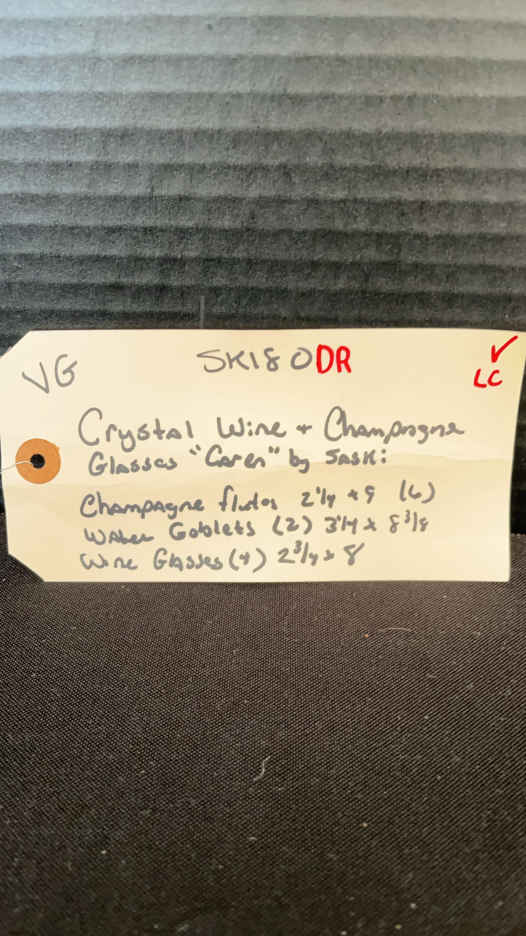 VG
SK180DR
✓
LC
Crystal Wine + Champagne
Glasses "Caren" by SASK:
Champagne flutes 2 1/4 x 9 (6)
Water Goblets (2) 3 1/4 x 8 3/8
Wine Glasses (4) 2 3/4 x 8